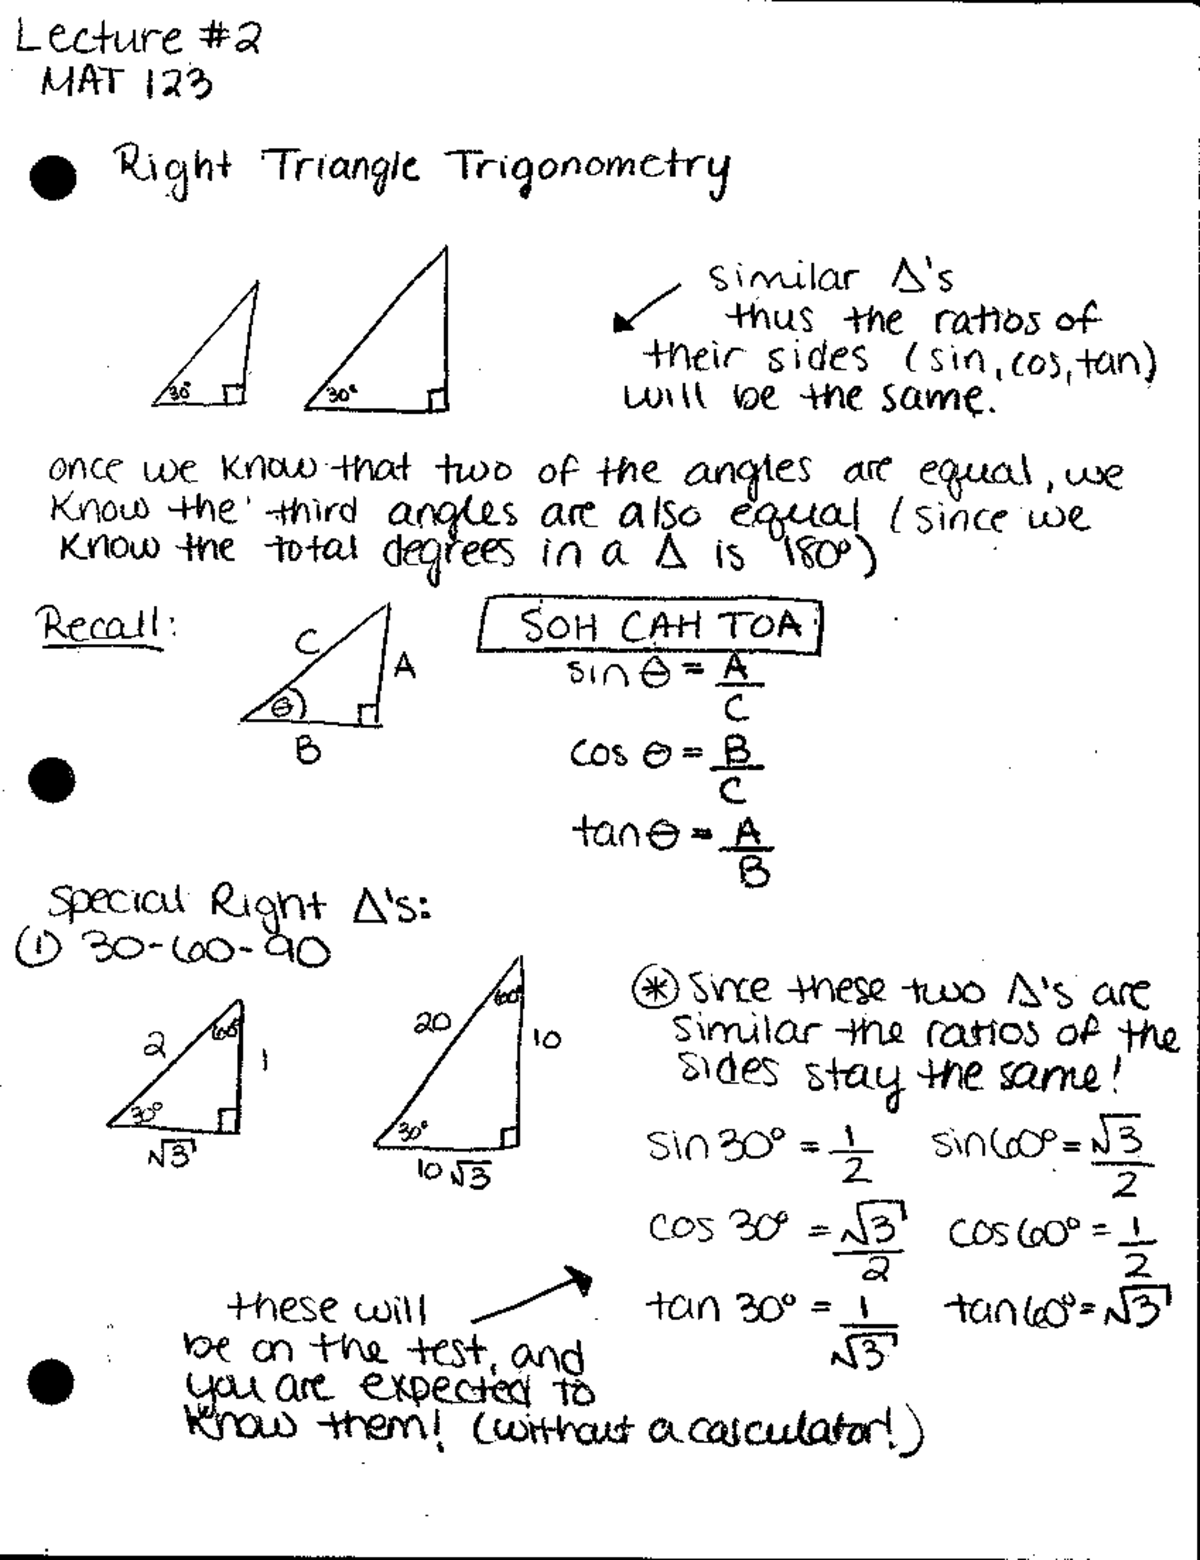 Lecture #2
MAT 123
Right Triangle Trigonometry
30°
30°
similar Δ's
thus the ratios of
their sides (sin, cos, tan)
will be the same.
once we know that two of the angles are equal, we
know the third angles are also equal (since we
know the total degrees in a Δ is 180°)
Recall:
C
A
θ
B
SOH CAH TOA
sin θ = A/C
cos θ = B/C
tan θ = A/B
Special Right Δ's:
① 30-60-90
2
60°
1
30°
√3
20
60°
10
30°
10√3
⊛ Since these two Δ's are
similar the ratios of the
sides stay the same!
sin 30° = 1/2 sin 60° = √3/2
cos 30° = √3/2 cos 60° = 1/2
tan 30° = 1/√3 tan 60° = √3
these will
be on the test, and
you are expected to
know them! (without a calculator!)